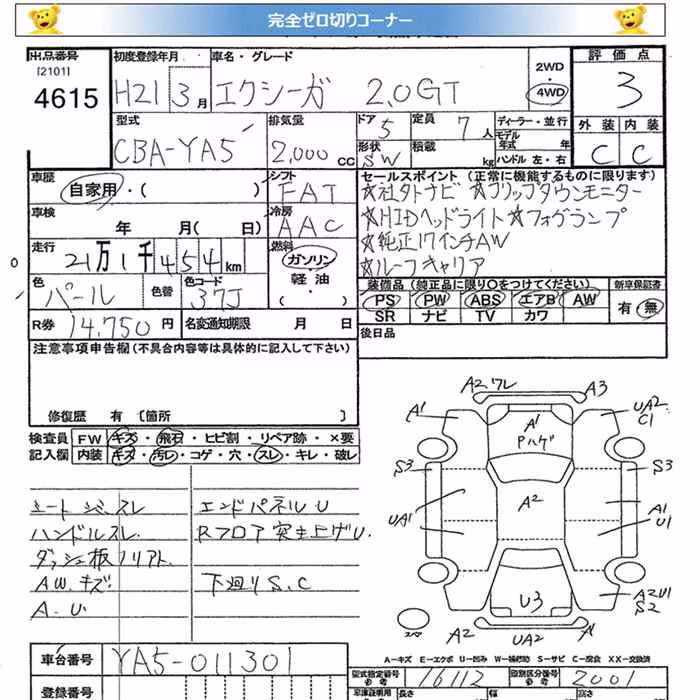 完全ゼロ切りコーナー
出品番号
[2101]
4615
初度登録年月
H21 3月
車名・グレード
エクシーガ 2.0GT
2WD
4WD
評価点
3
外装 内装
C C
型式
CBA-YA5
排気量
2,000 CC
ドア 5
定員 7人
形状 SW
積載 kg
ディーラー・並行
モデル年式 年
ハンドル 左・右
車歴
自家用・( )
シフト
FAT
車検
年 月( 日)
冷房
AAC
走行
21万1千454km
燃料
ガソリン
軽油
・( )
色
パール
色替
色コード
37J
R券 14,750円
名変通知期限 月 日
セールスポイント(正常に機能するものに限ります)
☆社外ナビ ☆フリップダウンモニター
☆HIDヘッドライト ☆フォグランプ
☆純正17インチAW
☆ルーフキャリア
装備品(純正品に限り○をつけてください)
新車保証書
PS PW ABS エアB AW
SR ナビ TV カワ
有・無
後日品
注意事項申告欄(不具合内容等は具体的に記入して下さい)
修復歴 有〔箇所 〕
検査員 FW キズ・飛石・ヒビ割・リペア跡・×要
記入欄 内装 キズ・汚レ・コゲ・穴・スレ・キレ・破レ
シートシミスレ
エンドパネルU
ハンドルスレ
Rフロア突き上げU
ダッシュ板ノリアト
AW.キズ
下廻りS.C
A.U
A2.ワレ A3
A1 UA2
C1
A1
Pハゲ
S3 S3
UA1 A2 A1
U1
U3 A2U1
S2
スペア
A2 UA2 A1
A-キズ E-エクボ U-凹み W-補修跡 S-サビ C-腐食 XX-交換済
車台番号 YA5-011301
型式指定番号
参考
16112
類別区分番号
参考
2001
登録番号
車庫証明用
参考
長さ 幅 高さ